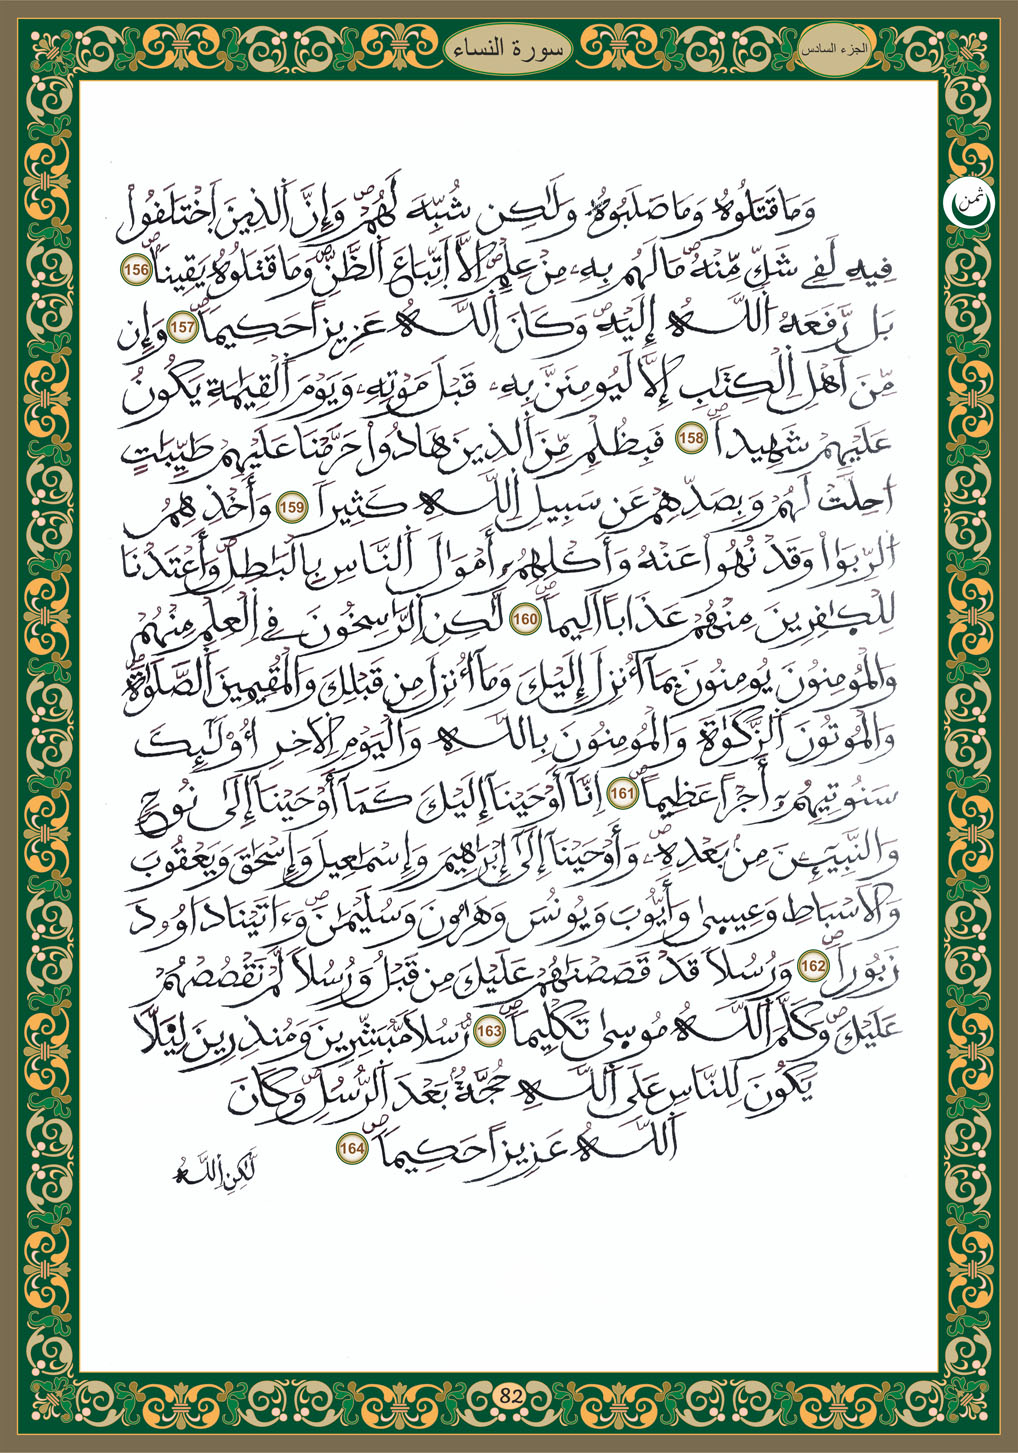 الجزء السادس
سورة النساء
ثمن
وَمَا قَتَلُوهُ وَمَا صَلَبُوهُ وَلَٰكِن شُبِّهَ لَهُمْ وَإِنَّ اَلذِينَ اَخْتَلَفُواْ
فِيهِ لَفِے شَكّٖ مِّنْهُ مَا لَهُم بِهِۦ مِنْ عِلْمٍ اِلَّا اَتِّبَاعَ اَلظَّنِّ وَمَا قَتَلُوهُ يَقِيناَۢ 156
بَل رَّفَعَهُ اُللَّهُ إِلَيْهِ وَكَانَ اَللَّهُ عَزِيزاً حَكِيماٗ 157 وَإِن
مِّنَ اَهْلِ اِلْكِتَٰبِ إِلَّا لَيُومِنَنَّ بِهِۦ قَبْلَ مَوْتِهِۦ وَيَوْمَ اَلْقِيَٰمَةِ يَكُونُ
عَلَيْهِمْ شَهِيداٗ 158 فَبِظُلْمٖ مِّنَ اَلذِينَ هَادُواْ حَرَّمْنَا عَلَيْهِمْ طَيِّبَٰتٍ
اُحِلَّتْ لَهُمْ وَبِصَدِّهِمْ عَن سَبِيلِ اِللَّهِ كَثِيراٗ 159 وَأَخْذِهِمُ
اُلرِّبَوٰاْ وَقَدْ نُهُواْ عَنْهُ وَأَكْلِهِمُۥٓ أَمْوَالَ اَلنَّاسِ بِالْبَٰطِلِ وَأَعْتَدْنَا
لِلْكٰ۪فِرِينَ مِنْهُمْ عَذَاباً اَلِيماٗ 160 لَّٰكِنِ اِلرَّٰسِخُونَ فِے اِلْعِلْمِ مِنْهُمْ
وَالْمُومِنُونَ يُومِنُونَ بِمَآ أُنزِلَ إِلَيْكَ وَمَآ أُنزِلَ مِن قَبْلِكَ وَالْمُقِيمِينَ اَلصَّلَوٰةَ
وَالْمُوتُونَ اَلزَّكَوٰةَ وَالْمُومِنُونَ بِاللَّهِ وَالْيَوْمِ اِلَاخِرِ أُوْلَٰٓئِكَ
سَنُوتِيهِمُۥٓ أَجْراً عَظِيماً 161 اِنَّآ أَوْحَيْنَآ إِلَيْكَ كَمَآ أَوْحَيْنَآ إِلَىٰ نُوحٖ
وَالنَّبِيٓـِٕينَ مِنۢ بَعْدِهِۦ وَأَوْحَيْنَآ إِلَىٰٓ إِبْرَٰهِيمَ وَإِسْمَٰعِيلَ وَإِسْحَٰقَ وَيَعْقُوبَ
وَالَاسْبَاطِ وَعِيس۪ىٰ وَأَيُّوبَ وَيُونُسَ وَهَٰرُونَ وَسُلَيْمَٰنَ وَءَاتَيْنَا دَاوُۥدَ
زَبُوراٗ 162 وَرُسُلاٗ قَدْ قَصَصْنَٰهُمْ عَلَيْكَ مِن قَبْلُ وَرُسُلاٗ لَّمْ نَقْصُصْهُمْ
عَلَيْكَ وَكَلَّمَ اَللَّهُ مُوس۪ىٰ تَكْلِيماٗ 163 رُّسُلاٗ مُّبَشِّرِينَ وَمُنذِرِينَ لِيَلَّا
يَكُونَ لِلنَّاسِ عَلَى اَللَّهِ حُجَّةُۢ بَعْدَ اَلرُّسُلِ وَكَانَ
اَللَّهُ عَزِيزاً حَكِيماٗ 164
لَّٰكِنِ اِللَّهُ
82